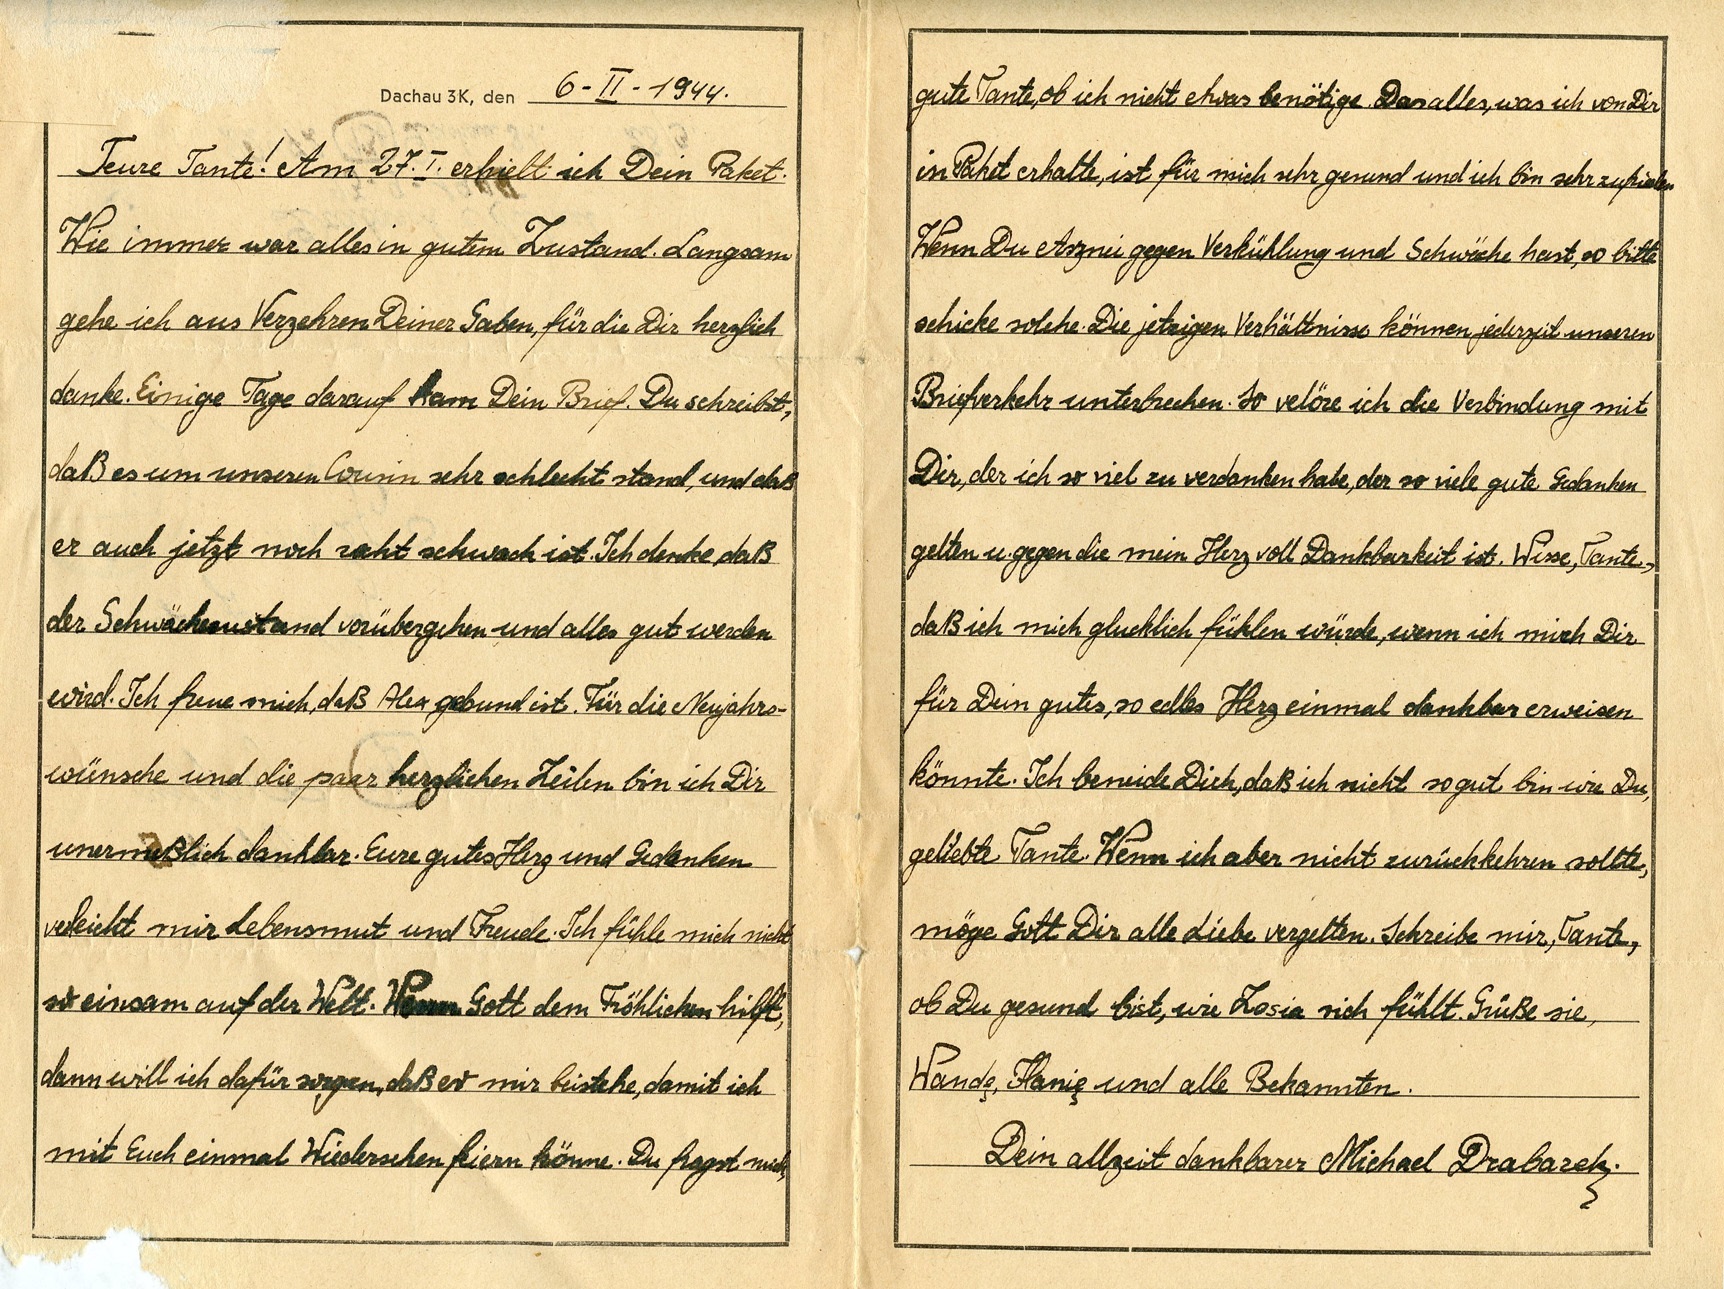 Dachau 3K, den 6-II-1944.
Teure Tante! Am 27.I. erhielt ich Dein Paket.
Wie immer war alles in gutem Zustand. Langsam
gehe ich aus Verzehren Deiner Gaben, für die Dir herzlich
danke. Einige Tage darauf kam Dein Brief. Du schreibst,
daß es um unseren Cousin sehr schlecht stand, und daß
er auch jetzt noch recht schwach ist. Ich denke, daß
der Schwächezustand vorübergehen und alles gut werden
wird. Ich freue mich, daß Alex gesund ist. Für die Neujahrs-
wünsche und die paar herzlichen Zeilen bin ich Dir
unermeßlich dankbar. Eure gutes Herz und Gedanken
verleicht mir Lebensmut und Freude. Ich fühle mich nicht
so einsam auf der Welt. Wenn Gott dem Fröhlichen hilft,
dann will ich dafür sorgen, daß er mir beistehe, damit ich
mit Euch einmal Wiedersehen feiern könne. Du fragst mich,
gute Tante, ob ich nicht etwas benötige. Das alles, was ich von Dir
in Paket erhalte, ist für mich sehr gesund und ich bin sehr zufrieden
Wenn Du Arznei gegen Verkühlung und Schwäche hast, so bitte
schicke solche. Die jetzigen Verhältnisse können jederzeit unseren
Briefverkehr unterbrechen. So velöre ich die Verbindung mit
Dir, der ich so viel zu verdanken habe, der so viele gute Gedanken
gelten u. gegen die mein Herz voll Dankbarkeit ist. Wisse, Tante,
daß ich mich glucklich fühlen würde, wenn ich mich Dir
für Dein gutes, so edles Herz einmal dankbar erweisen
könnte. Ich beneide Dich, daß ich nicht so gut bin wie Du,
geliebte Tante. Wenn ich aber nicht zurückkehren sollte,
möge Gott Dir alle Liebe vergelten. Schreibe mir, Tante,
ob Du gesund bist, wie Zosia sich fühlt. Grüße sie,
Wandę, Hanię und alle Bekannten.
Dein allzeit dankbarer Michael Drabarek.